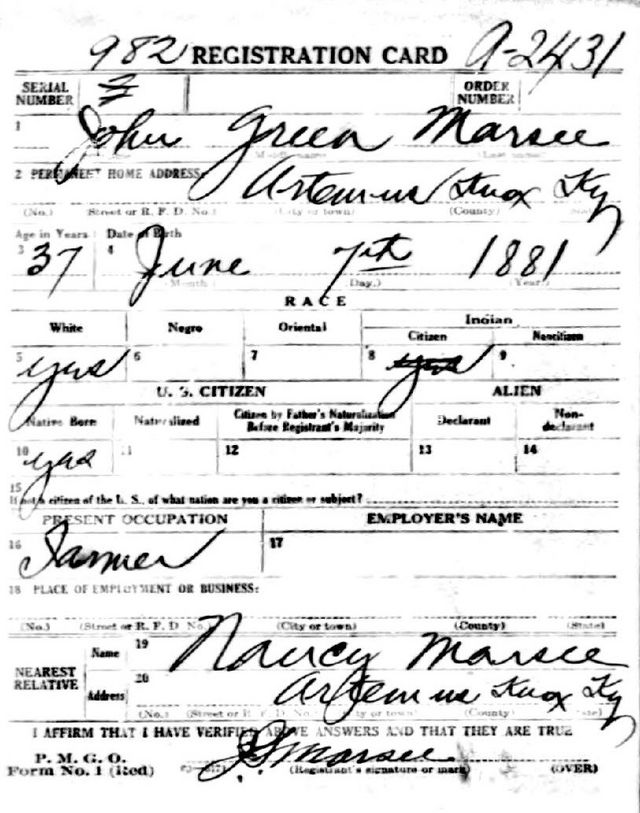 982 REGISTRATION CARD A-2431
SERIAL NUMBER ORDER NUMBER
1 John Green Marsee
2 PERMANENT HOME ADDRESS:
Artemus Knox Ky
(No.) (Street or R. F. D. No.) (City or town) (County)
Age in Years Date of Birth
3 37 4 June 7th 1881
(Month) (Day.) (Year)
RACE
White Negro Oriental Indian
Citizen Noncitizen
5 yes 6 7 8 yes 9
U. S. CITIZEN ALIEN
Native Born Naturalized Citizen by Father's Naturalization Before Registrant's Majority Declarant Non-declarant
10 yes 11 12 13 14
15 If not a citizen of the U. S., of what nation are you a citizen or subject?
PRESENT OCCUPATION EMPLOYER'S NAME
16 Farmer 17
18 PLACE OF EMPLOYMENT OR BUSINESS:
(No.) (Street or R. F. D. No.) (City or town) (County) (State)
NEAREST RELATIVE
Name 19 Nancy Marsee
Address 20 Artemus Knox Ky
(No.) (Street or R. F. D. No.) (City or town) (County) (State)
I AFFIRM THAT I HAVE VERIFIED ABOVE ANSWERS AND THAT THEY ARE TRUE
P. M. G. O.
Form No. 1 (Red) J. G. Marsee
(Registrant's signature or mark) (OVER)